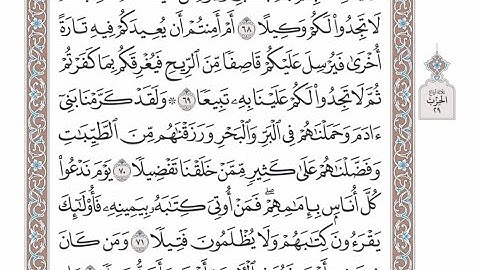 لَا تَجِدُوا۟ لَكُمْ وَكِيلًا ٦٨ أَمْ أَمِنتُمْ أَن يُعِيدَكُمْ فِيهِ تَارَةً
أُخْرَىٰ فَيُرْسِلَ عَلَيْكُمْ قَاصِفًا مِّنَ ٱلرِّيحِ فَيُغْرِقَكُم بِمَا كَفَرْتُمْ
ثُمَّ لَا تَجِدُوا۟ لَكُمْ عَلَيْنَا بِهِۦ تَبِيعًا ٦٩ ۞ وَلَقَدْ كَرَّمْنَا بَنِىٓ
ءَادَمَ وَحَمَلْنَٰهُمْ فِى ٱلْبَرِّ وَٱلْبَحْرِ وَرَزَقْنَٰهُم مِّنَ ٱلطَّيِّبَٰتِ
وَفَضَّلْنَٰهُمْ عَلَىٰ كَثِيرٍ مِّمَّنْ خَلَقْنَا تَفْضِيلًا ٧٠ يَوْمَ نَدْعُوا۟
كُلَّ أُنَاسٍۭ بِإِمَٰمِهِمْ ۖ فَمَنْ أُوتِىَ كِتَٰبَهُۥ بِيَمِينِهِۦ فَأُو۟لَٰٓئِكَ
يَقْرَءُونَ كِتَٰبَهُمْ وَلَا يُظْلَمُونَ فَتِيلًا ٧١ وَمَن كَانَ
الحزب
٢٩